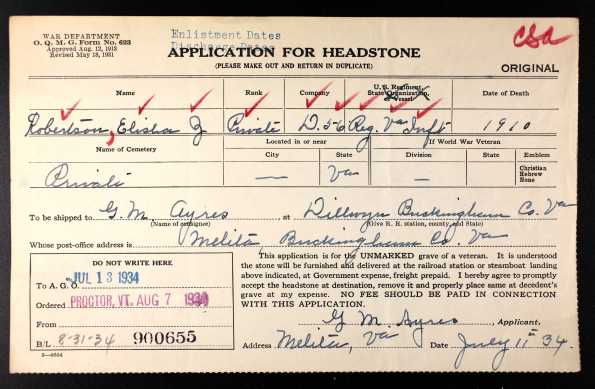 WAR DEPARTMENT
O. Q. M. G. Form No. 623
Approved Aug. 12, 1913
Revised May 18, 1931
Enlistment Dates
Discharge Dates
CSA
APPLICATION FOR HEADSTONE
(PLEASE MAKE OUT AND RETURN IN DUPLICATE)
ORIGINAL
Name Rank Company U. S. Regiment, State Organization, Vessel Date of Death
Robertson, Elisha Z Private D. 56 Reg. Va Inft 1910
Name of Cemetery Located in or near If World War Veteran
City State Division State Emblem
Private — Va — Christian Hebrew None
To be shipped to G. M. Ayres at Dillwyn Buckingham Co. Va
(Name of consignee) (Give R. R. station, county, and State)
Whose post-office address is Melita, Buckingham Co. Va
DO NOT WRITE HERE
To A. G. O. JUL 13 1934
Ordered PROCTOR, VT. AUG 7 1934
From
B/L 8-31-34 900655
This application is for the UNMARKED grave of a veteran. It is understood
the stone will be furnished and delivered at the railroad station or steamboat landing
above indicated, at Government expense, freight prepaid. I hereby agree to promptly
accept the headstone at destination, remove it and properly place same at decedent's
grave at my expense. NO FEE SHOULD BE PAID IN CONNECTION
WITH THIS APPLICATION.
G M. Ayres, Applicant.
Address Melita, Va Date July 11th 34.